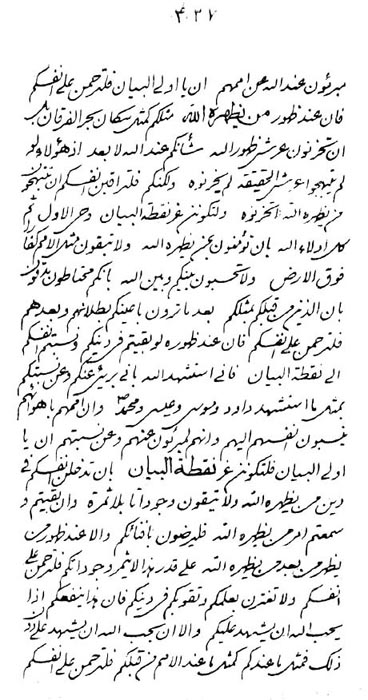 ۴۲۷
مبرئون عند الله عن اممهم ان یا اولی البیان فلترحمن علی انفسکم
فان عند ظهور من یظهره الله مثلکم کمثل سکان بحر الفرقان
ان تحزنون عرش ظهور الله شأنکم عند الله لا بعد اذ هؤلاء لو
لم تبتهجوا عرش الحقیقة لم یحزنوه ولکنکم فلتراقبن انفسکم ان
من یظهره الله لتحزنوه ولتکونن غر نقطة البیان وحی الاول ثم
کل ادلاء الله بان تؤمنون بمن یظهره الله ولا تبقون مثل الامم
فوق الارض ولا تحسبون بینکم وبین الله بانکم محتاطون
بان الذین من قبلکم بمثلکم بعد ما ترون باعینکم بطلانهم وبعدهم
فلترحمن علی انفسکم فان عند ظهوره لو بقیتم فی دینکم ونسبتم انفسکم
الی نقطة البیان فانی استشهد الله بانی بریء عنکم وعن نسبتکم
بمثل ما استشهد داود وموسی وعیسی ومحمد وان اممهم باهوائهم
ینسبون انفسهم الیهم وانهم لمبرئون عنهم وعن نسبتهم ان یا
اولی البیان فلتکونن غر نقطة البیان بان تدخلن انفسکم فی
دین من یظهره الله ولا تبقون وجوداتا بلا ثمرة وان بقیتم و
سمعتم امر من یظهره الله فلترضون بافنائکم والا عند ظهور من
یظهر من بعد من یظهره الله علی قدر هذا لا یثمر وجوداتکم فلترحمن علی
انفسکم ولا تغترن بعلمکم وتقویکم فی دینکم فان هذا ینفعکم اذا
یحب الله ان یشهد علیکم والا ان یحب الله ان یشهد علی دون
ذلک فمثل ما عندکم کمثل ما عند الامم من قبلکم فلترحمن علی انفسکم